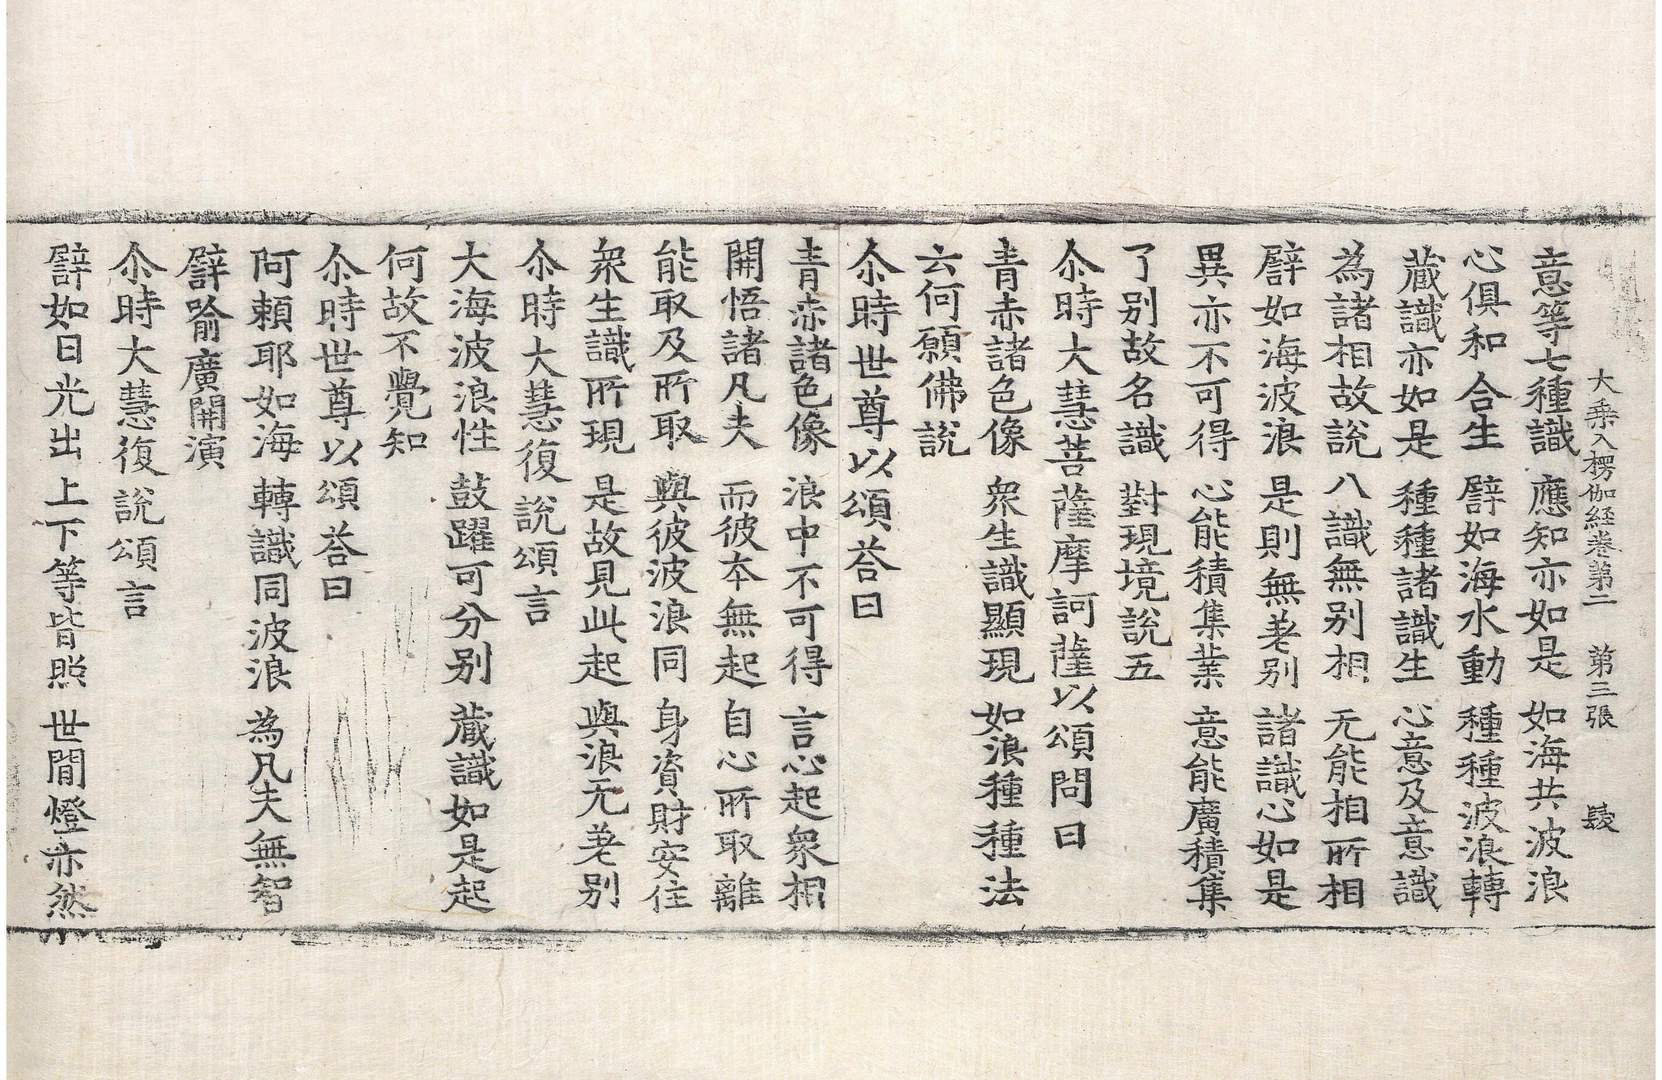 大乗入楞伽経巻苐二　苐三張　髮
意等七種識　應知亦如是　如海共波浪
心俱和合生　譬如海水動　種種波浪轉
蔵識亦如是　種種諸識生　心意及意識
為諸相故說　八識無别相　无能相所相
譬如海波浪　是則無差别　諸識心如是
異亦不可得　心能積集業　意能廣積集
了别故名識　對現境說五
尒時大慧菩薩摩訶薩以頌問曰
青赤諸色像　衆生識顯現　如浪種種法
云何願佛說
尒時世尊以頌荅曰
青赤諸色像　浪中不可得　言心起衆相
開悟諸凡夫　而彼夲無起　自心所取離
能取及所取　與彼波浪同　身資財安住
衆生識所現　是故見此起　與浪无差别
尒時大慧復說頌言
大海波浪性　鼓躍可分别　蔵識如是起
何故不覺知
尒時世尊以頌荅曰
阿頼耶如海　轉識同波浪　為凡夫無智
譬喻廣開演
尒時大慧復說頌言
譬如日光出　上下等皆照　世間燈亦然